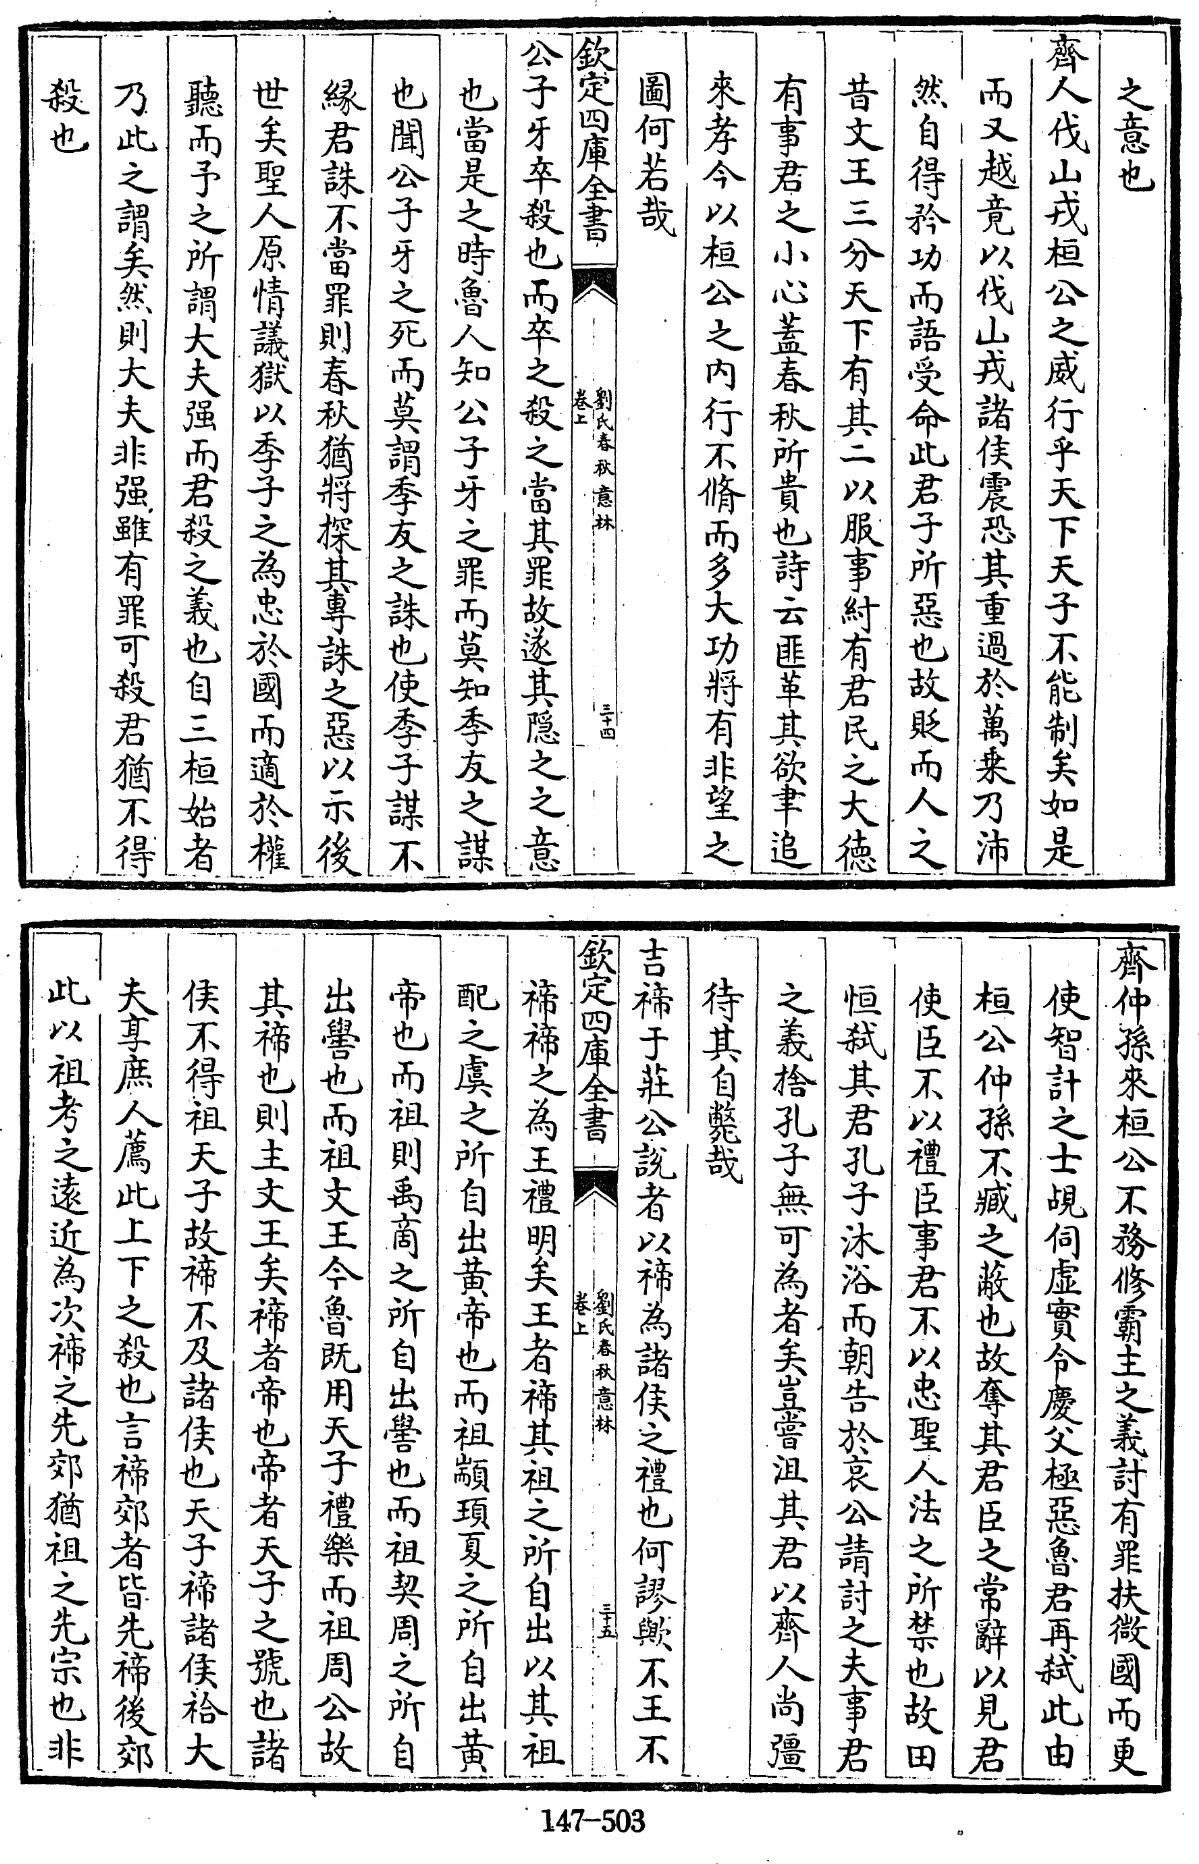 之意也
齊人伐山戎桓公之威行乎天下天子不能制矣如是
而又越竟以伐山戎諸侯震恐其重過於萬乗乃沛
然自得矜功而語受命此君子所惡也故貶而人之
昔文王三分天下有其二以服事紂有君民之大德
有事君之小心蓋春秋所貴也詩云匪革其欲聿追
來孝今以桓公之内行不脩而多大功將有非望之
圖何若哉
欽定四庫全書
劉氏春秋意林
卷上
三十四
公子牙卒殺也而卒之殺之當其罪故遂其隠之之意
也當是之時魯人知公子牙之罪而莫知季友之謀
也聞公子牙之死而莫謂季友之誅也使季子謀不
縁君誅不當罪則春秋猶將探其專誅之惡以示後
世矣聖人原情議獄以季子之為忠於國而適於權
聽而予之所謂大夫强而君殺之義也自三桓始者
乃此之謂矣然則大夫非强雖有罪可殺君猶不得
殺也
齊仲孫來桓公不務修霸主之義討有罪扶微國而更
使智計之士覘伺虛實令慶父極惡魯君再弑此由
桓公仲孫不臧之蔽也故奪其君臣之常辭以見君
使臣不以禮臣事君不以忠聖人法之所禁也故田
恒弑其君孔子沐浴而朝告於哀公請討之夫事君
之義捨孔子無可為者矣豈嘗沮其君以齊人尚彊
待其自斃哉
吉禘于莊公說者以禘為諸侯之禮也何謬歟不王不
欽定四庫全書
劉氏春秋意林
卷上
三十五
禘禘之為王禮明矣王者禘其祖之所自出以其祖
配之虞之所自出黄帝也而祖顓頊夏之所自出黄
帝也而祖則禹商之所自出嚳也而祖契周之所自
出嚳也而祖文王今魯既用天子禮樂而祖周公故
其禘也則主文王矣禘者帝也帝者天子之號也諸
侯不得祖天子故禘不及諸侯也天子禘諸侯祫大
夫享庶人薦此上下之殺也言禘郊者皆先禘後郊
此以祖考之遠近為次禘之先郊猶祖之先宗也非
147-503